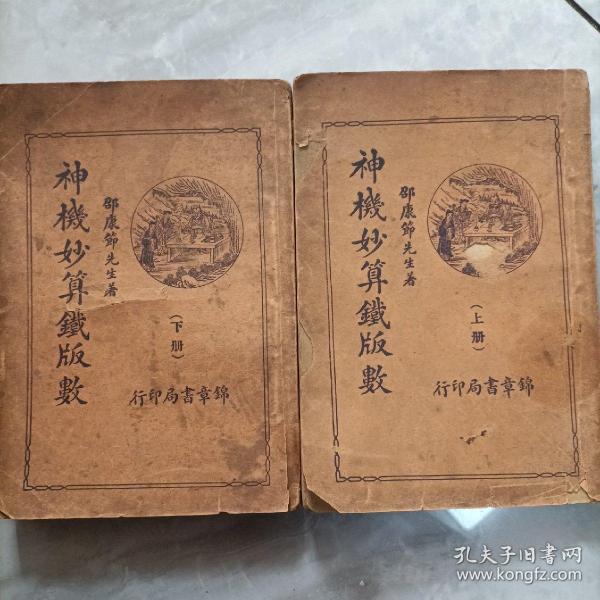 神機妙算鐵版數
邵康節先生著
（下册）
錦章書局印行
神機妙算鐵版數
邵康節先生著
（上册）
錦章書局印行
孔夫子旧書网
www.kongfz.com